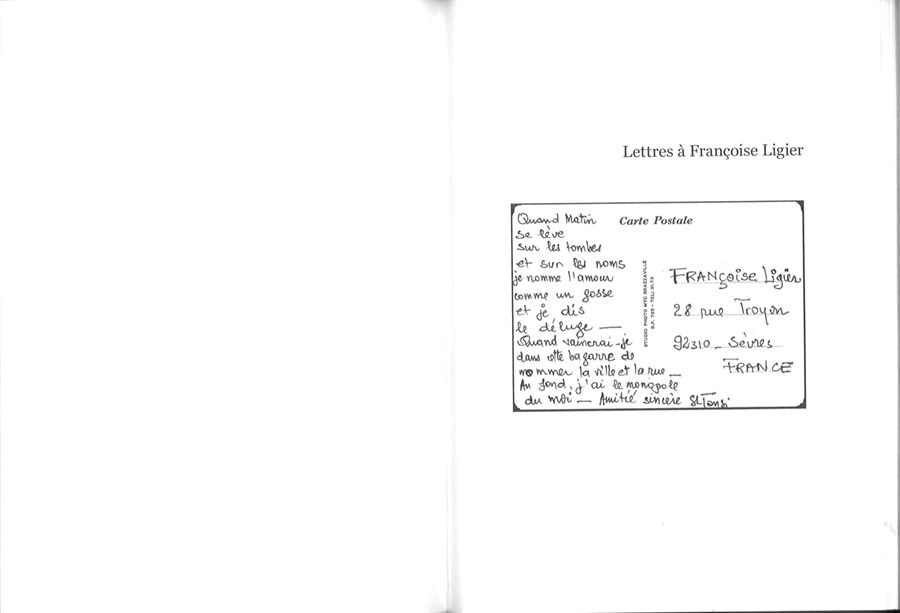 Lettres à Françoise Ligier
Carte Postale
Quand Matin
se lève
sur les tombes
et sur les noms
je nomme l'amour
comme un gosse
et je dis
le déluge —
Quand vaincrai-je
dans cette bagarre de
nommer la ville et la rue —
Au fond, j'ai le monopole
du moi — Amitié sincère SLTansi
STUDIO PHOTO MYC BRAZZAVILLE
FRANÇoise Ligier
28 rue Troyon
92310 - Sèvres
FRANCE